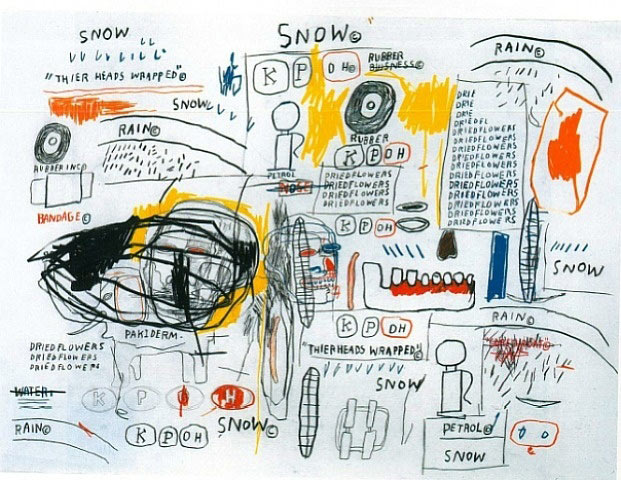 SNOW
"THIER HEADS WRAPPED"©
SNOW
RAIN©
RUBBER INC©
BANDAGE©
SNOW©
K P OH©
RUBBER
BUSNESS©
RUBBER
K P OH
PETROL
DRIEDFLOWERS
DRIEDFLOWERS
DRIEDFLOWERS
DRIEDFLOWERS
K P OH
RAIN©
DRIE
DRIE
DRIE
DRIEDFL
DRIEDFLOWERS
DRIEDFLOWERS
DRIEDFLOWERS
DRIEDFLOWERS
DRIEDFLOWERS
DRIEDFLOWERS
DRIEDFLOWERS
DRIEDFLOWERS
DRIEDFLOWERS
SNOW
PAKIDERM-
DRIEDFLOWERS
DRIEDFLOWERS
DRIEDFLOWERS
WATER
K P H
RAIN©
K P OH
SNOW©
K P OH
"THIERHEADS WRAPPED"©
SNOW
RAIN©
PETROL©
SNOW